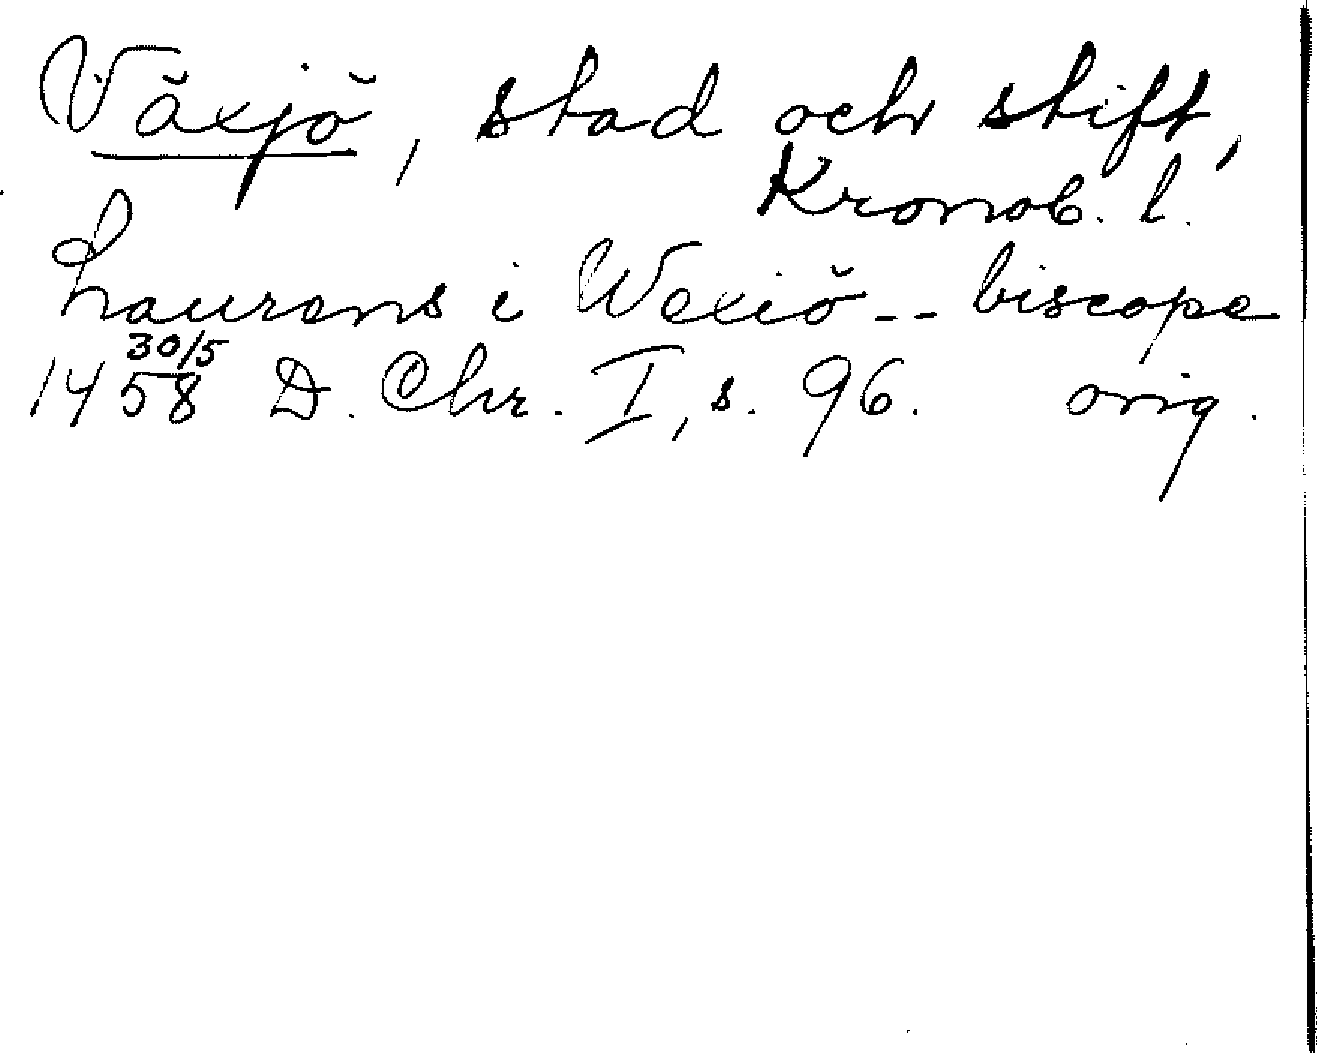 Växjö, stad och stift,
Kronob. l.
Laurens i Wexiö -- biscope
30/5
1458 D. Chr. I, s. 96. orig.